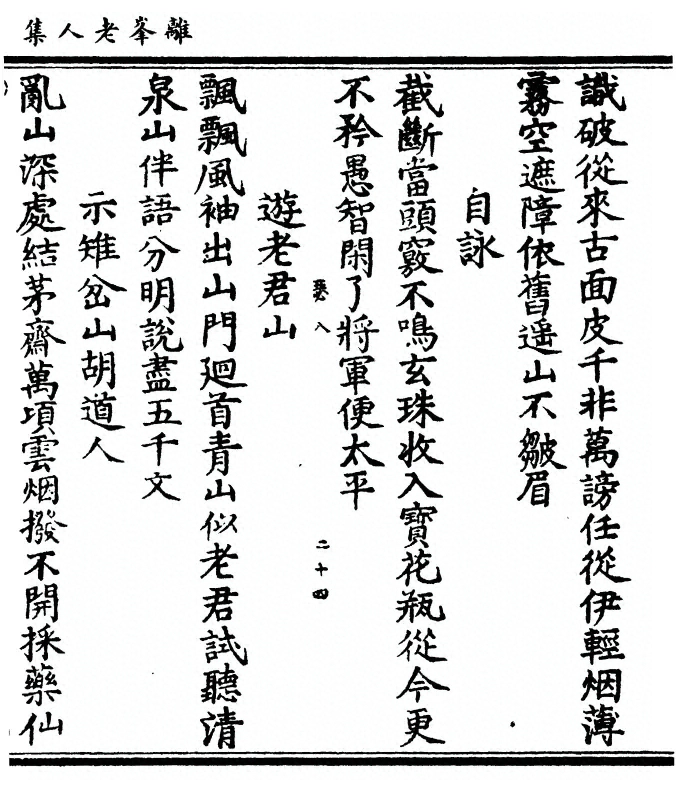 離峯老人集
識破從來古面皮千非萬謗任從伊輕烟薄
霧空遮障依舊遥山不皺眉
自詠
截斷當頭竅不鳴玄珠收入寶花瓶從今更
不矜愚智閑了將軍便太平
八
二十四
遊老君山
飄飄風袖出山門廻首青山似老君試聽清
泉山伴語分明說盡五千文
示雉岔山胡道人
亂山深處結茅齋萬項雲烟撥不開採藥仙